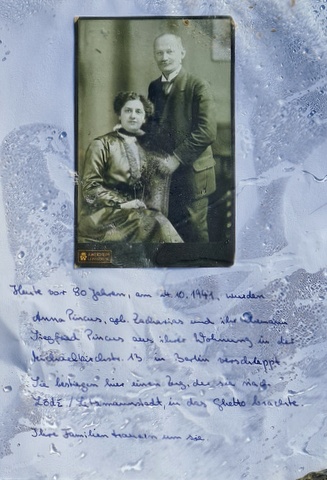 Heute vor 80 Jahren, am 24.10.1941, wurden
Anna Pincus, geb. Zacharias und ihr Ehemann
Siegfried Pincus aus ihrer Wohnung in der
Michaelkirchstr. 13 in Berlin verschleppt.
Sie bestiegen hier einen Zug, der sie nach
Łódź / Litzmannstadt, in das Ghetto brachte.
Ihre Familien trauern um sie.